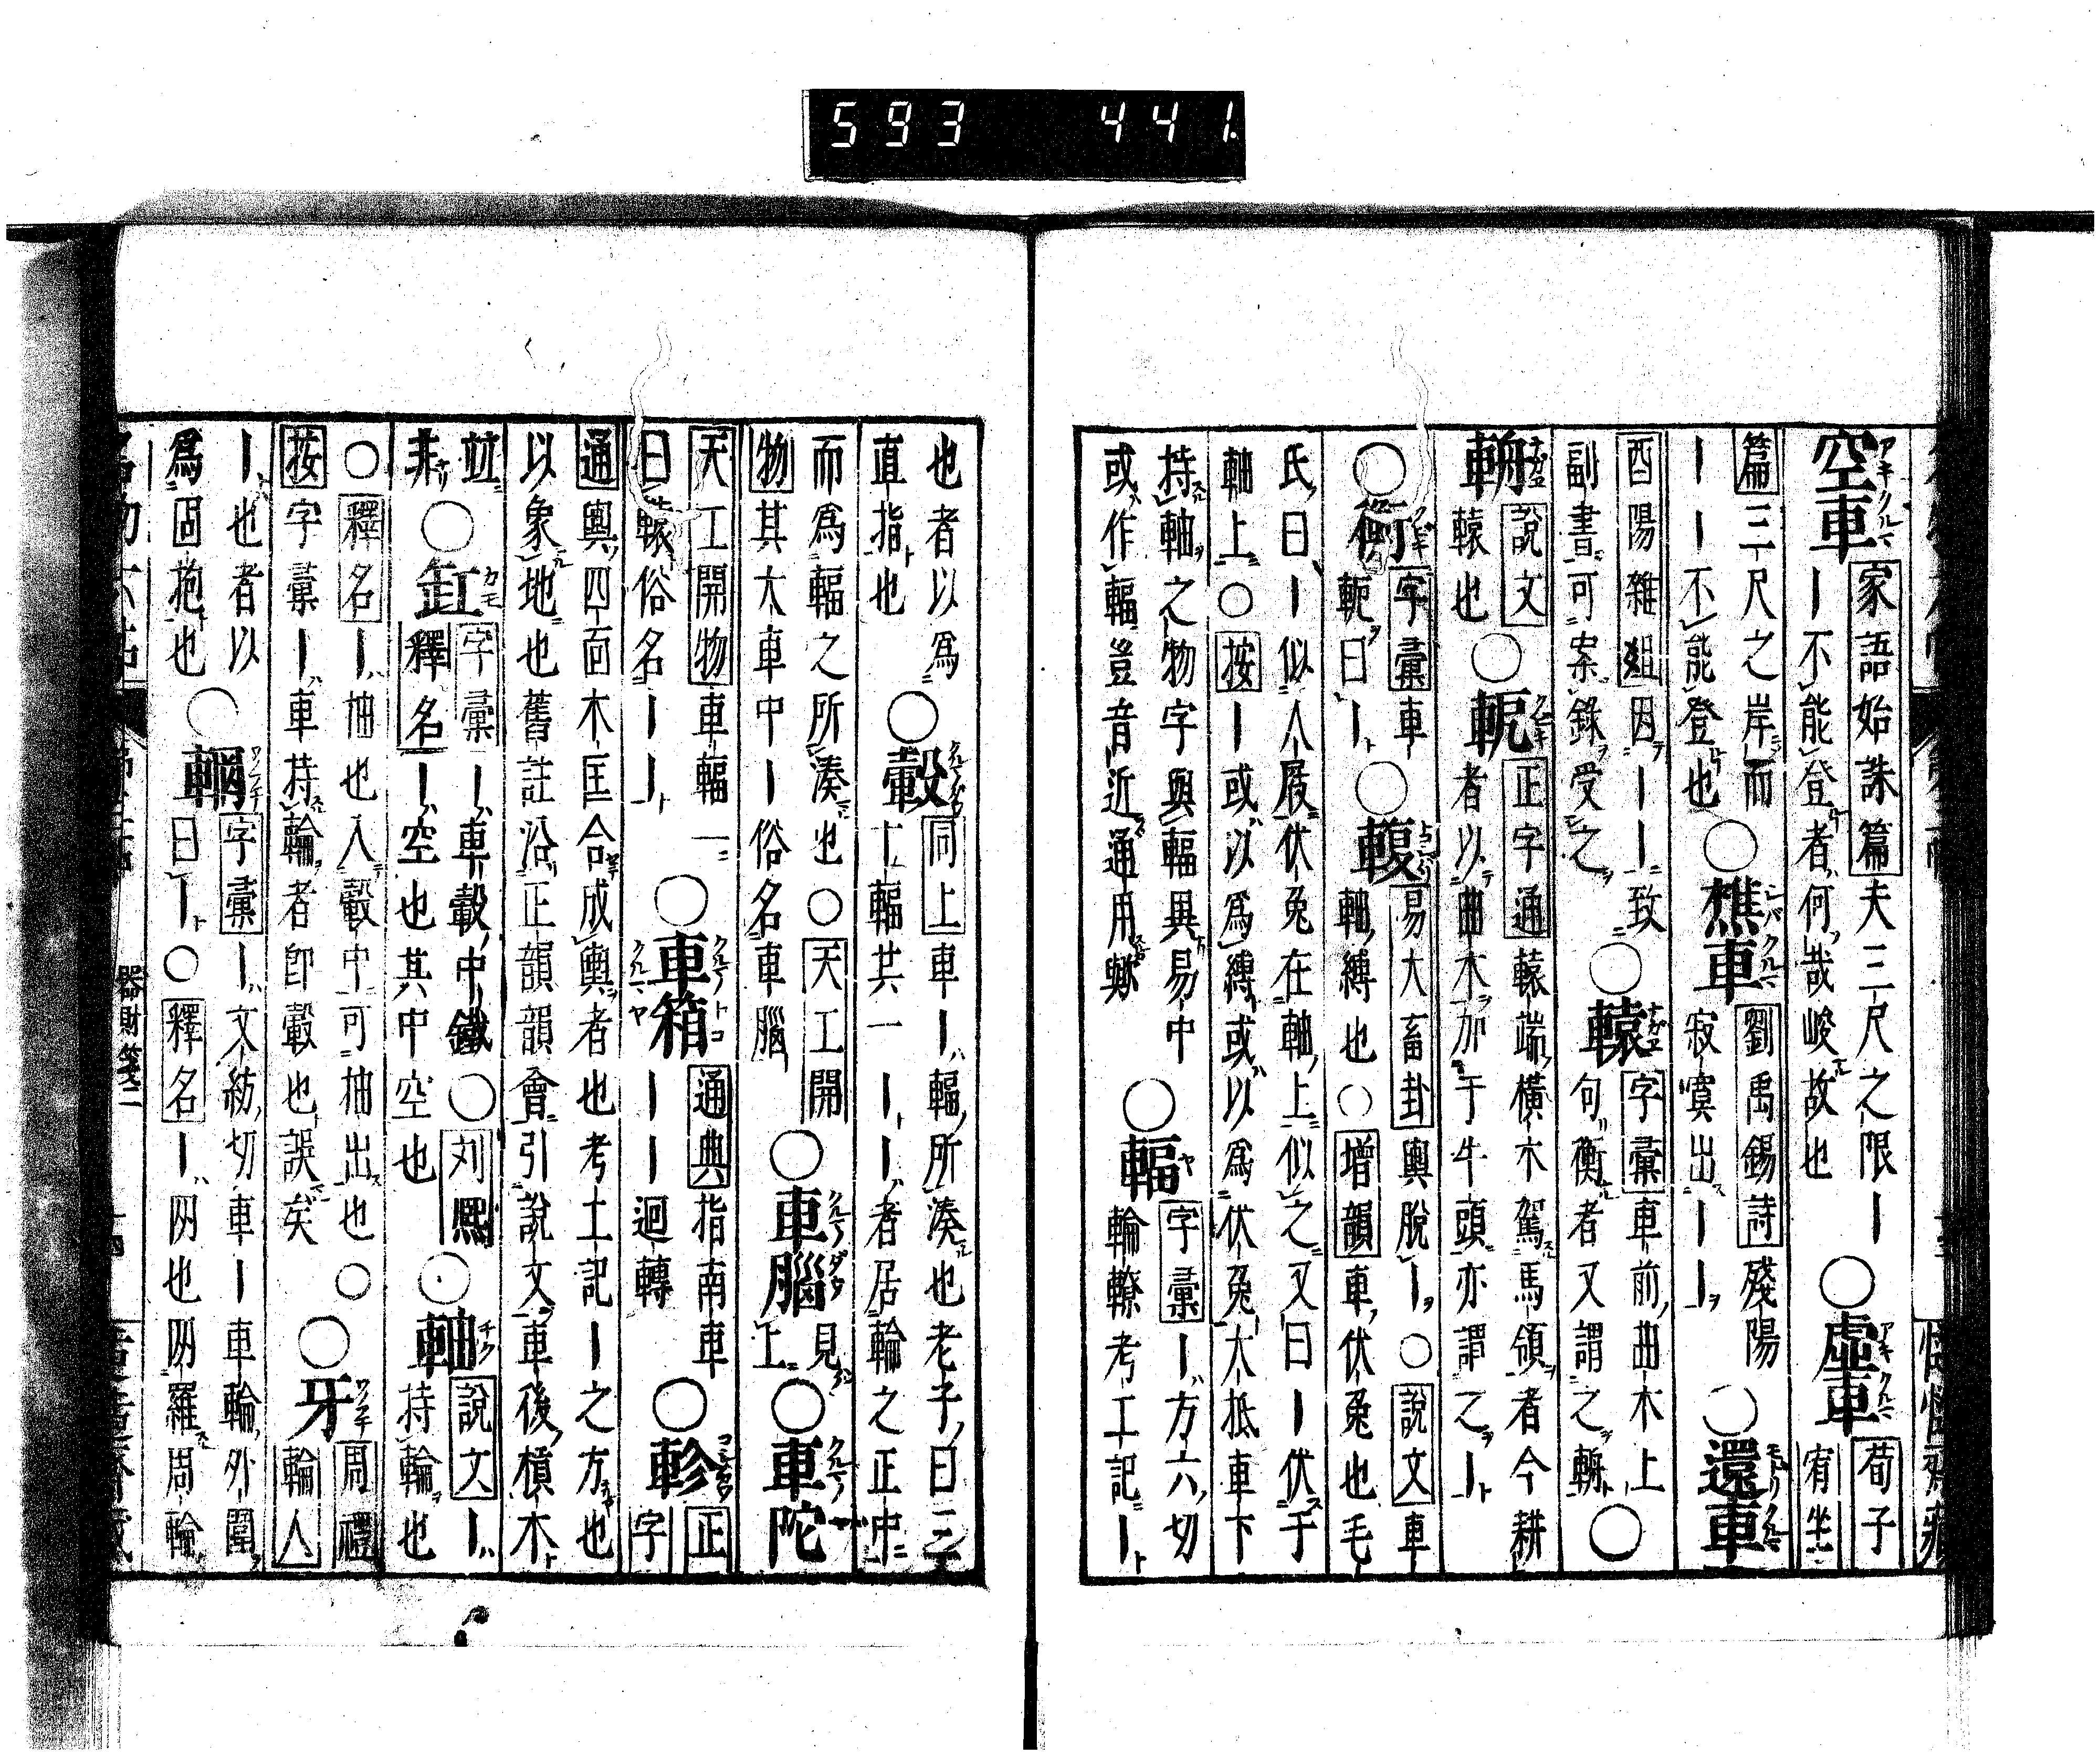 空車 家語始誅篇夫三尺之限丨
丨不能登者何哉峻故也
○虚車 荀子
宥坐
篇三尺之岸而
丨丨不能登也
○樵車 劉禹錫詩殘陽
寂寞出丨丨
○還車
酉陽雜俎因丨丨致
副書可案錄受之
○轅 字彙車前曲木上
句衡者又謂之輈
○
輈 說文
轅也
○軛 正字通轅端横木駕馬領者今耕
者以曲木加于牛頭亦謂之丨
○衡 字彙車
軛曰丨
○輹 易大畜卦輿脫丨○說文車
軸縛也○增韻車伏兔也毛
氏曰丨似人屐伏兔在軸上似之又曰丨伏于
軸上○按丨或以爲縛或以爲伏兔大抵車下
持軸之物字與輻異易中
或作輻豈音近通用歟
○輻 字彙丨方六切
輪轑考工記丨
也者以爲
直指也
○轂 同上車丨輻所湊也老子曰三
十輻共一丨丨者居輪之正中
而爲輻之所湊也○天工開
物其大車中丨俗名車腦
○車腦 見
上
○車陀
天工開物車輻一
曰轅俗名丨丨
○車箱 通典指南車
丨丨迴轉
○軫 正
字
通輿四面木匡合成輿者也考工記丨之方也
以象地也舊註沿正韻韻會引說文車後横木
竝
非
○釭 字彙丨車轂中鐵○刘熙
釋名丨空也其中空也
○軸 說文丨
持輪也
○釋名丨抽也入轂中可抽出也○
按字彙丨車持輪者卽轂也誤矣
○牙 周禮
輪人
丨也者以
爲固抱也
○輞 字彙丨文紡切車丨車輪外圍
曰丨○釋名丨罔也罔羅周輪
器財箋二
593 441